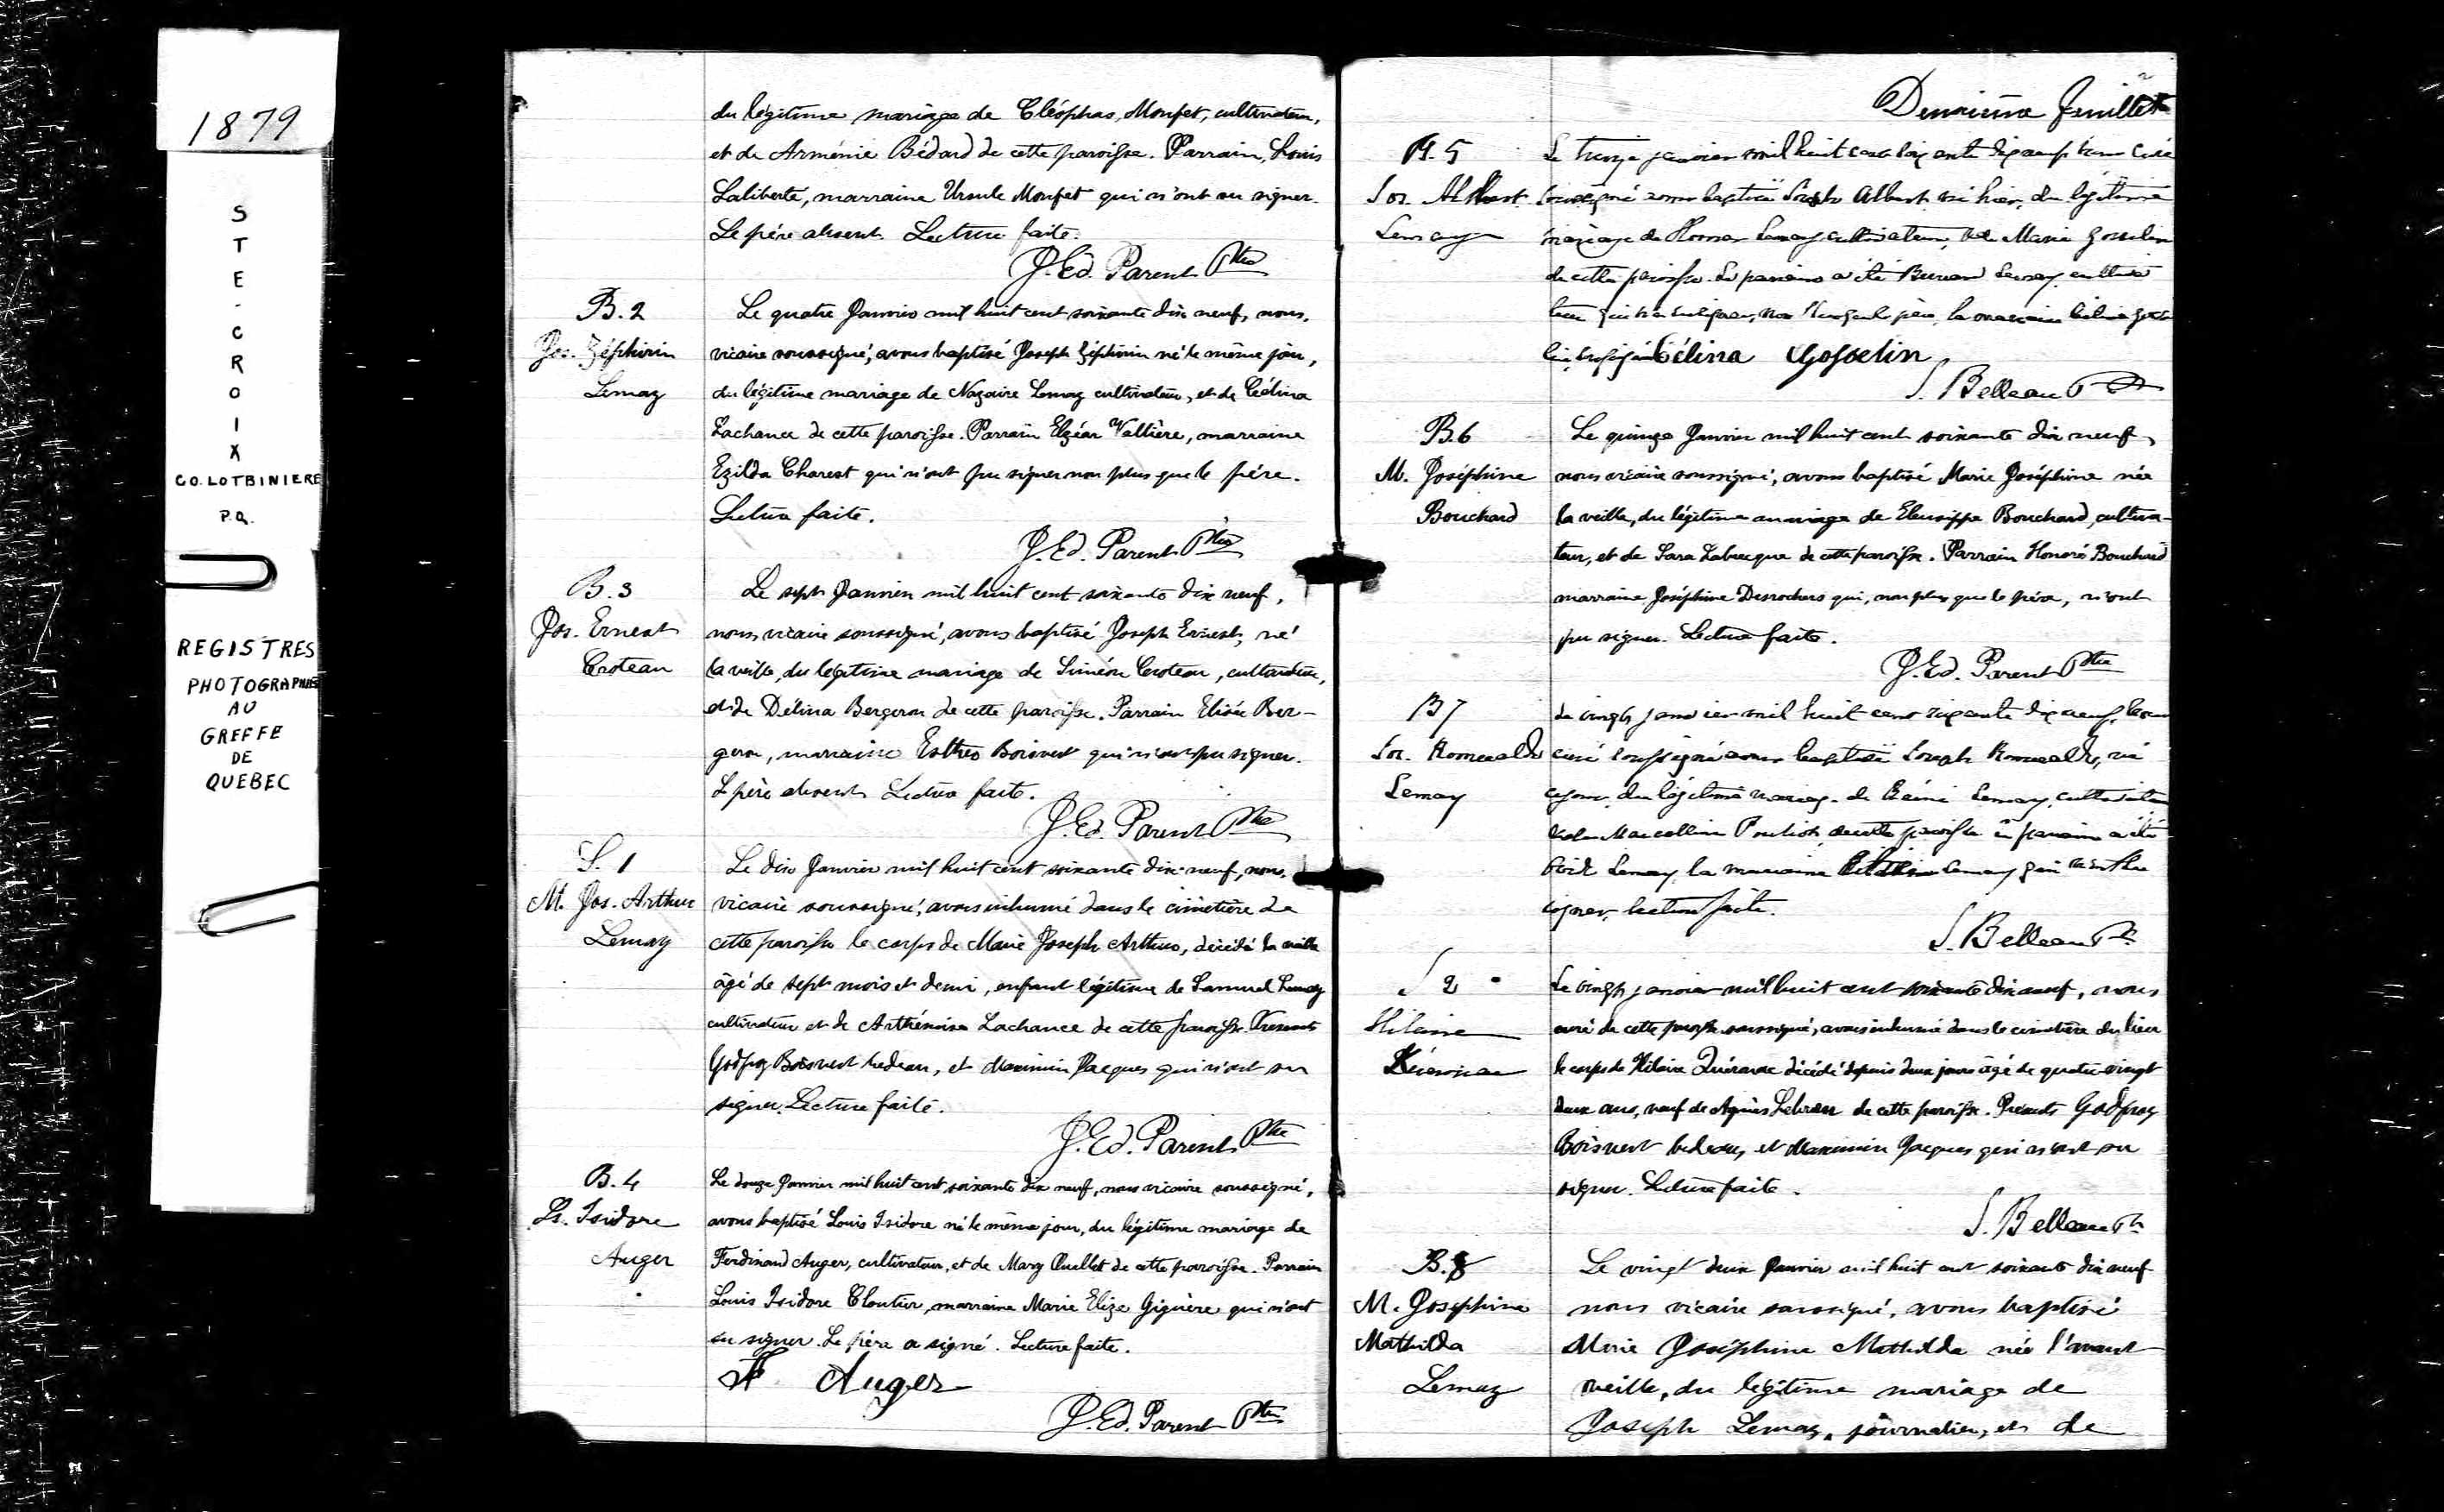 1879
STE-CROIX
CO. LOTBINIERE
P.Q.
REGISTRES
PHOTOGRAPHIES
AU
GREFFE
DE
QUEBEC
du légitime mariage de Cléophas Monfet, cultivateur,
et de Arménie Bédard de cette paroisse. Parrain, Louis
Laliberté, marraine Ursule Monfet qui n'ont su signer.
Le père absent. Lecture faite.
J. Ed. Parent Ptre
B. 2
Jos. Zéphirin
Lemay
Le quatre Janvier mil huit cent soixante dix neuf, nous,
vicaire soussigné, avons baptisé Joseph Zéphirin né le même jour,
du légitime mariage de Nazaire Lemay cultivateur, et de Célina
Lachance de cette paroisse. Parrain Elzéar Vallière, marraine
Ezilda Charest qui n'ont pu signer non plus que le père.
Lecture faite.
J. Ed. Parent Ptre
B. 3
Jos. Ernest
Croteau
Le sept Janvier mil huit cent soixante dix neuf,
nous vicaire soussigné, avons baptisé Joseph Ernest, né
la veille, du légitime mariage de Siméon Croteau, cultivateur,
et de Délina Bergeron de cette paroisse. Parrain Elisée Ber-
geron, marraine Esther Boisvert qui n'ont pu signer.
Le père absent. Lecture faite.
J. Ed. Parent Ptre
S. 1
M. Jos. Arthur
Lemay
Le dix Janvier mil huit cent soixante dix-neuf, nous,
vicaire soussigné, avons inhumé dans le cimetière de
cette paroisse le corps de Marie Joseph Arthur, décédé la veille
âgé de sept mois et demi, enfant légitime de Samuel Lemay
cultivateur et de Arthémise Lachance de cette paroisse. Présents
Godfroy Boisvert bedeau, et Maximin Jacques qui n'ont su
signer. Lecture faite.
J. Ed. Parent Ptre
B. 4
Ls. Isidore
Auger
Le douze Janvier mil huit cent soixante dix neuf, nous vicaire soussigné,
avons baptisé Louis Isidore né le même jour, du légitime mariage de
Ferdinand Auger, cultivateur, et de Mary Ouellet de cette paroisse. Parrain
Louis Isidore Cloutier, marraine Marie Eliza Giguère qui n'ont
su signer. Le père a signé. Lecture faite.
F Auger
J. Ed. Parent Ptre
Deuxième feuillet
B. 5
Jos. Albert
Lemay
Le treize janvier mil huit cent soixante dix neuf nous curé
soussigné avons baptisé Joseph Albert né hier, du légitime
mariage de Lemay cultivateur, & de Marie Gosselin
de cette paroisse. Le parrain a été Lemay cultiva
teur qui n'a su signer, non plus que le père, la marraine Célina Gosse
lin, a signé Célina Gosselin
S. Belleau Ptre
B. 6
M. Joséphine
Bouchard
Le quinze Janvier mil huit cent soixante dix neuf,
nous vicaire soussigné, avons baptisé Marie Joséphine née
la veille, du légitime mariage de Eleusippe Bouchard, cultiva-
teur, et de Sara Labrecque de cette paroisse. Parrain Honoré Bouchard
marraine Joséphine Desrochers qui, non plus que le père, n'ont
pu signer. Lecture faite.
J. Ed. Parent Ptre
B 7
Jos. Romuald
Lemay
Le vingt janvier mil huit cent soixante dix neuf, nous
curé soussigné avons baptisé Joseph Romuald, né
ce jour, du légitime mariage de Lemay, cultivateur
& de Marcelline Pouliot, de cette paroisse. Le parrain a été
Lemay, la marraine Lemay qui n'ont su
signer, lecture faite.
S. Belleau Ptre
S 2
Hilaire
Le vingt janvier mil huit cent soixante dix neuf, nous
curé de cette paroisse soussigné, avons inhumé dans le cimetière du lieu
le corps de Hilaire décédé depuis deux jours âgé de quatre-vingt
deux ans, veuf de Agnès de cette paroisse. Présents Godfroy
Boisvert bedeau, et Maximin Jacques qui n'ont su
signer. Lecture faite.
S. Belleau Ptre
B. 8
M. Joséphine
Mathilda
Lemay
Le vingt deux Janvier mil huit cent soixante dix neuf
nous vicaire soussigné, avons baptisé
Marie Joséphine Mathilda née l'avant
veille, du légitime mariage de
Joseph Lemay, journalier, et de